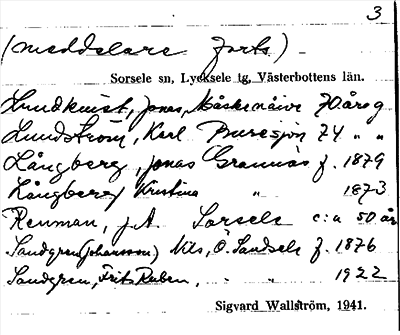 3
(meddelare forts.) -
Sorsele sn, Lycksele tg, Västerbottens län.
Lundkvist, Jonas, Måskenåive 70 år g
Lundström, Karl Buresjön 74 " "
Långberg, Jonas Grannäs f. 1879
Långberg Kristina " 1873
Renman, J.A. Sorsele c:a 50 år
Sandgren (Johansson) Nils, Ö. Sandsele f. 1876
Sandgren, Frits Ruben, " " 1922
Sigvard Wallström, 1941.